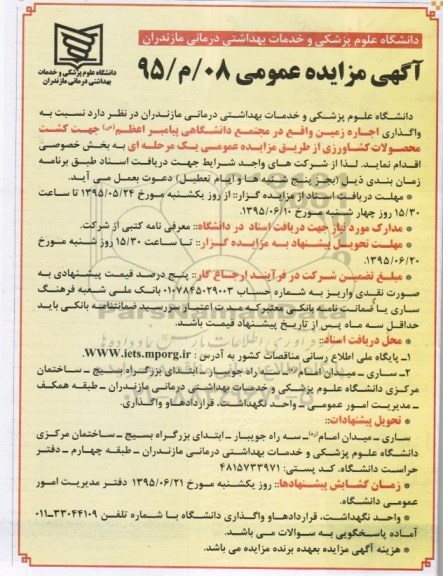 دانشگاه علوم پزشکی و خدمات بهداشتی درمانی مازندران
دانشگاه علوم پزشکی و خدمات
بهداشتی درمانی مازندران
آگهی مزایده عمومی ۰۸/م/۹۵
دانشگاه علوم پزشکی و خدمات بهداشتی درمانی مازندران در نظر دارد نسبت به
واگذاری اجاره زمین واقع در مجتمع دانشگاهی پیامبر اعظم(ص) جهت کشت
محصولات کشاورزی از طریق مزایده عمومی یک مرحله ای به بخش خصوصی
اقدام نماید. لذا از شرکت های واجد شرایط جهت دریافت اسناد طبق برنامه
زمان بندی ذیل (بجز پنج شنبه ها و ایام تعطیل) دعوت بعمل می آید.
* مهلت دریافت اسناد از مزایده گزار:: از روز یکشنبه مورخ ۱۳۹۵/۰۵/۲۴ تا ساعت
۱۵/۳۰ روز چهار شنبه مورخ ۱۳۹۵/۰۶/۱۰.
* مدارک مورد نیاز جهت دریافت اسناد در دانشگاه:: معرفی نامه کتبی از شرکت.
* مهلت تحویل پیشنهاد به مزایده گزار:: تا ساعت ۱۵/۳۰ روز شنبه مورخ
۱۳۹۵/۰۶/۲۰.
* مبلغ تضمین شرکت در فرآیند ارجاع کار:: پنج درصد قیمت پیشنهادی به
صورت نقدی واریز به شماره حساب ۰۱۰۷۸۴۵۰۲۹۰۰۳ بانک ملی شعبه فرهنگ
ساری یا ضمانت نامه بانکی معتبر که مدت اعتبار سررسید ضمانتنامه بانکی باید
حداقل سه ماه پس از تاریخ پیشنهاد قیمت باشد.
* محل دریافت اسناد::
۱ـ پایگاه ملی اطلاع رسانی مناقصات کشور به آدرس : WWW.iets.mporg.ir
۲ـ ساری ـ میدان امام ـ سه راه جویبار ـ ابتدای بزرگراه بسیج ـ ساختمان
مرکزی دانشگاه علوم پزشکی و خدمات بهداشتی درمانی مازندران ـ طبقه همکف
ـ مدیریت امور عمومی ـ واحد نگهداشت، قراردادها و واگذاری.
* تحویل پیشنهادات::
ساری ـ میدان امام(ره)ـ سه راه جویبار ـ ابتدای بزرگراه بسیج ـ ساختمان مرکزی
دانشگاه علوم پزشکی و خدمات بهداشتی درمانی مازندران ـ طبقه چهارم ـ دفتر
حراست دانشگاه. کد پستی: ۴۸۱۵۷۳۳۹۷۱
* زمان گشایش پیشنهادها:: روز یکشنبه مورخ ۱۳۹۵/۰۶/۲۱ دفتر مدیریت امور
عمومی دانشگاه.
* واحد نگهداشت، قراردادهاو واگذاری دانشگاه با شماره تلفن ۳۳۰۴۴۱۰۹-۰۱۱
آماده پاسخگویی به سوالات می باشد.
* هزینه آگهی مزایده بعهده برنده مزایده می باشد.
ParsNamadData